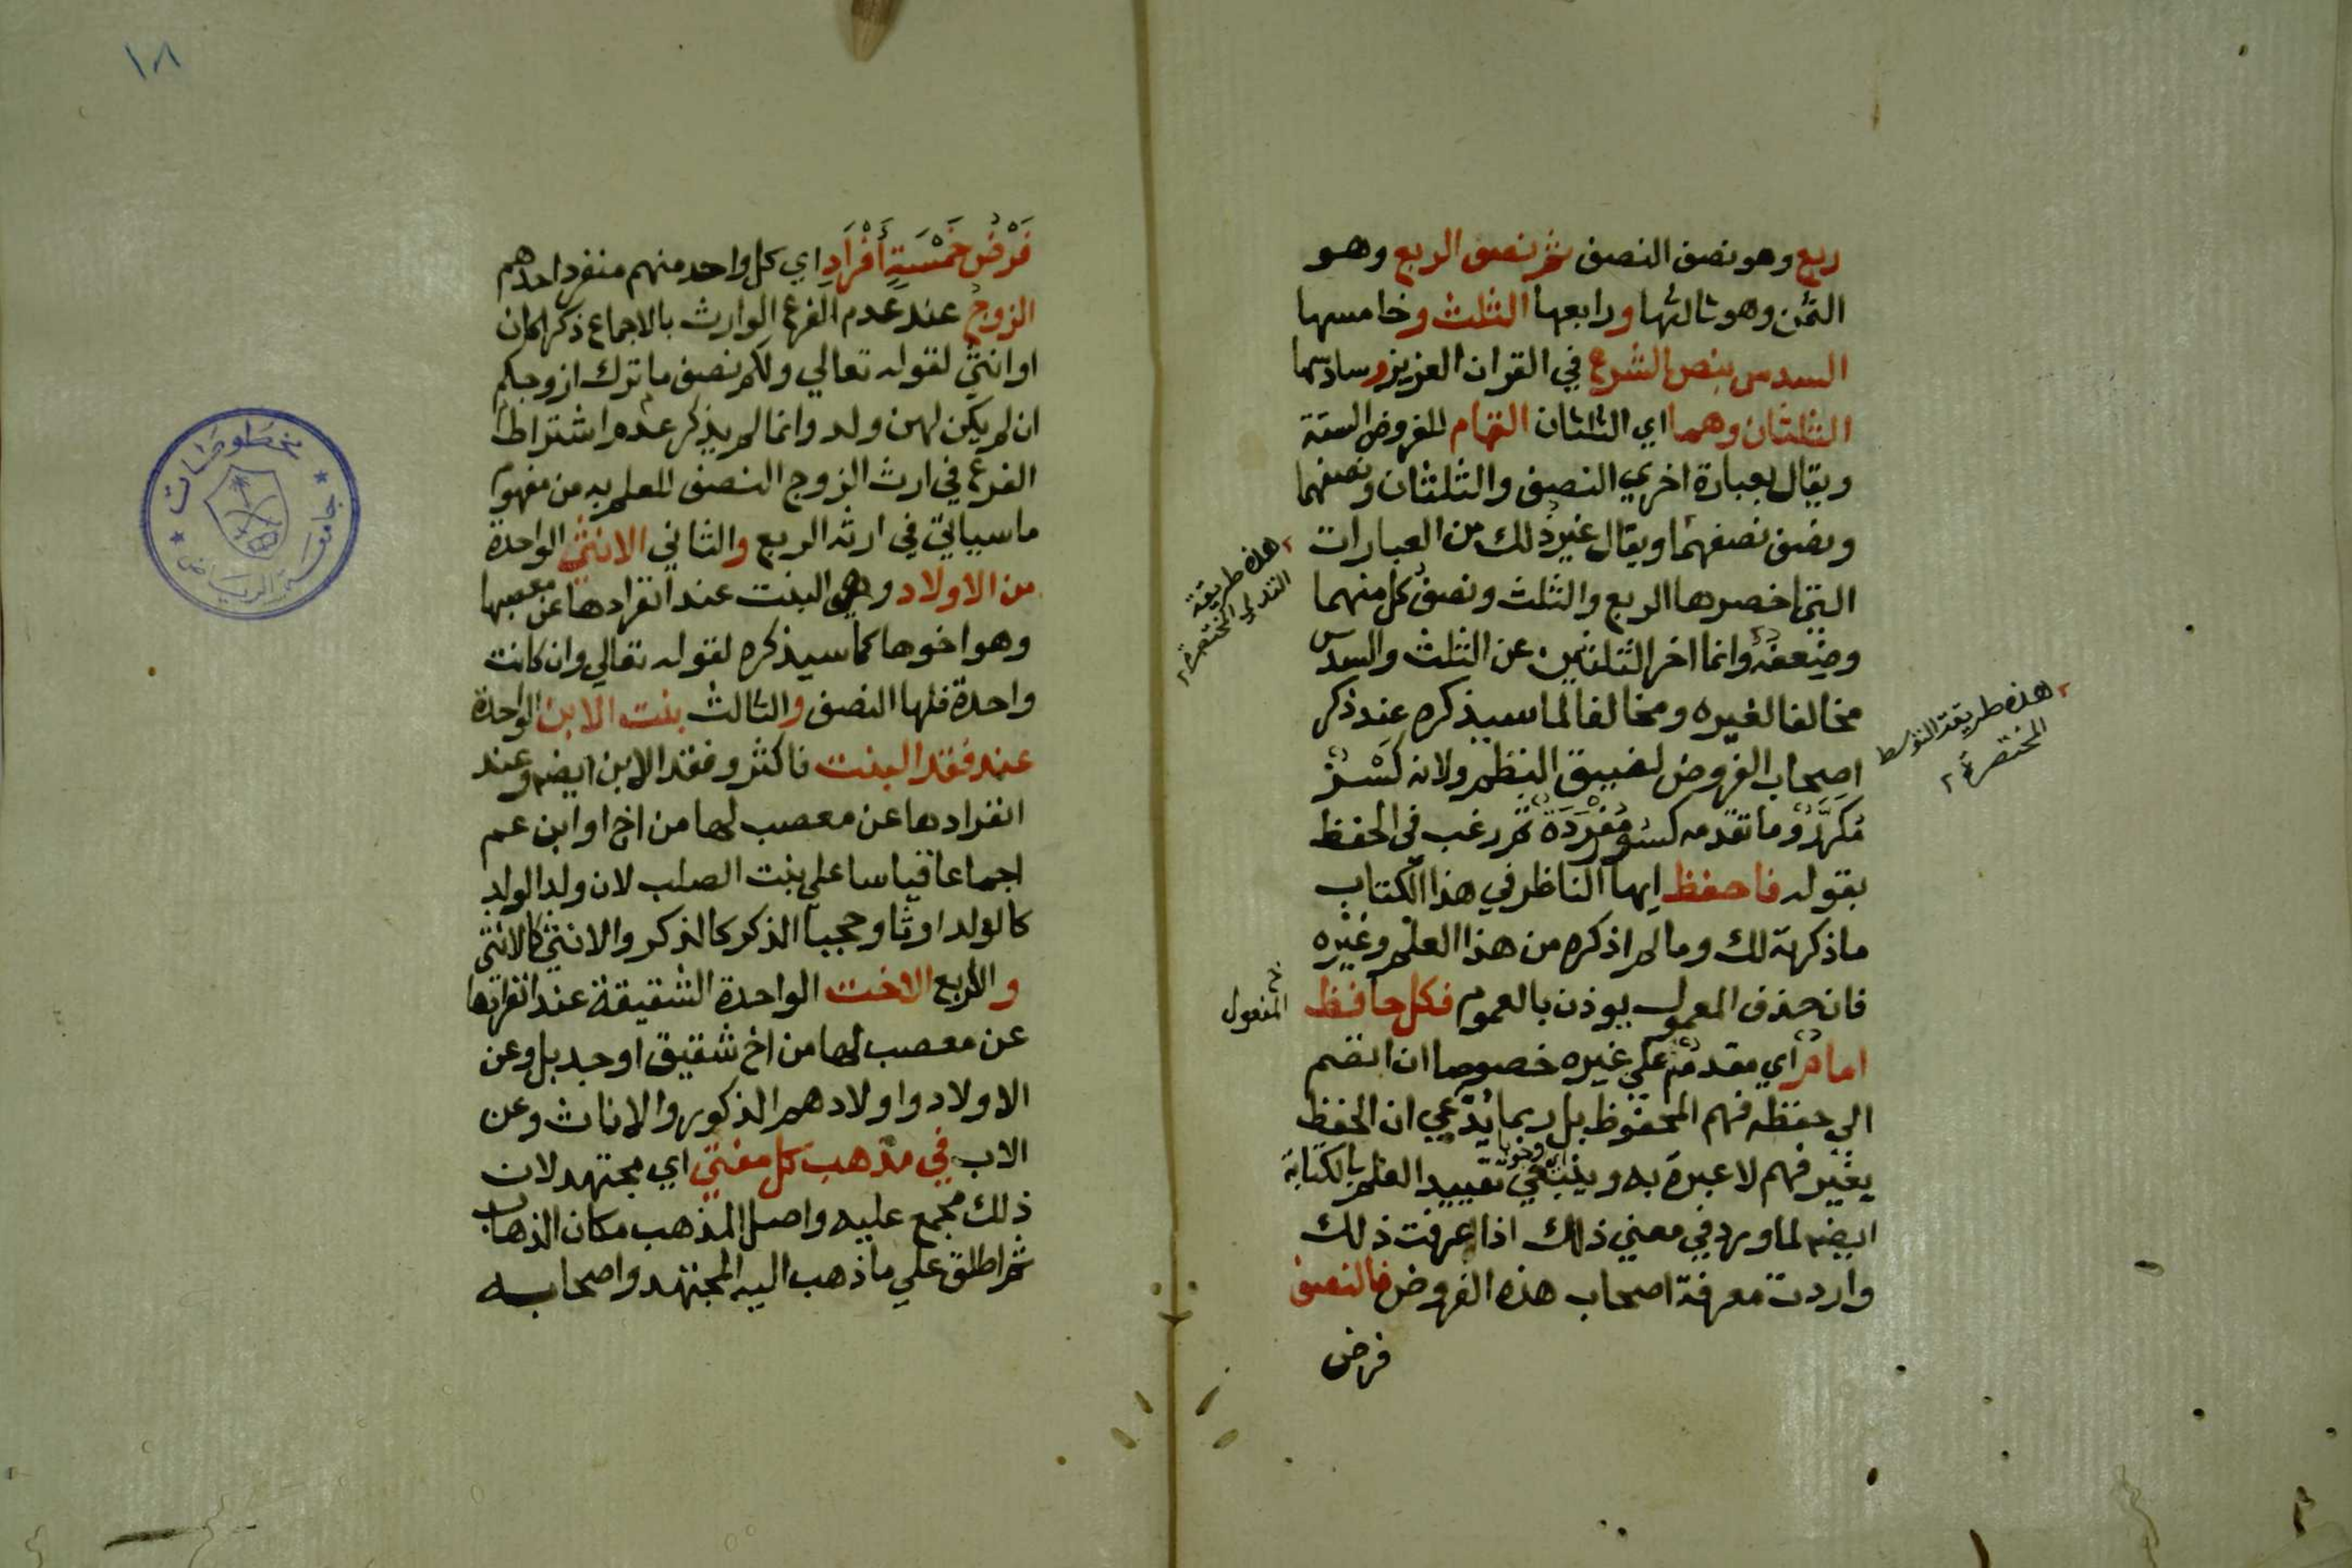 ربع وهو نصف النصف ثم نصف الربع وهو
الثمن وهو ثالثها ورابعها الثلث وخامسها
السدس بنص الشرع في القران العزيز وسادسها
الثلثان وهما اي الثلثان التمام للفروض الستة
ويقال بعبارة اخري النصف والثلثان ونصفهما
ونصف نصفهما ويقال غير ذلك من العبارات
التي اخصرها الربع والثلث ونصف كل منهما
وضعفه وانما اخر الثلثين عن الثلث والسدس
مخالفا لغيره ومخالفا لما سيذكره عند ذكر
اصحاب الفروض لضيق النظم ولانه كسر
مكرر وما تقدمه كسور مفردة ثم رغب في الحفظ
بقوله فاحفظ ايها الناظر في هذا الكتاب
ما ذكرته لك وما لم اذكره من هذا العلم وغيره
فان حذف المعمول يوذن بالعموم فكل حافظ
امام اي مقدم علي غيره خصوصا ان انضم
الي حفظه فهم المحفوظ بل ربما يدعي ان الحفظ
بغير فهم لا عبرة به وينبغي تقييد العلم بالكتابة
ايضا لما ورد في معني ذلك اذا عرفت ذلك
واردت معرفة اصحاب هذه الفروض فالنصف
فرض
هذه طريقة
التدلي المختصرة
هذه طريقة التوسط
المختصرة
المفعول
١٨
فَرْضُ خَمْسَةٍ أَفْرَادِ اي كل واحد منهم منفرد احدهم
الزوج عند عدم الفرع الوارث بالاجماع ذكرا كان
او انثي لقوله تعالي ولكم نصف ما ترك ازوجكم
ان لم يكن لهن ولد وانما لم يذكر عدم اشتراط
الفرع في ارث الزوج النصف للعلم به من مفهوم
ما سياتي في ارثه الربع والثاني الانثي الواحدة
من الاولاد وهي البنت عند انفرادها عن معصبها
وهو اخوها كما سيذكره لقوله تعالي وان كانت
واحدة فلها النصف والثالث بنت الابن الواحدة
عند فقد البنت فاكثر وفقد الابن ايضا وعند
انفرادها عن معصب لها من اخ او ابن عم
اجماعا قياسا علي بنت الصلب لان ولد الولد
كالولد ارثا وحجبا الذكر كالذكر والانثي كالانثي
والرابع الاخت الواحدة الشقيقة عند انفرادها
عن معصب لها من اخ شقيق او جد بل وعن
الاولاد واولادهم الذكور والاناث وعن
الاب في مذهب كل مفتي اي مجتهد لان
ذلك مجمع عليه واصل المذهب مكان الذهاب
ثم اطلق علي ما ذهب اليه المجتهد واصحابه
مخطوطات
جامعة الرياض